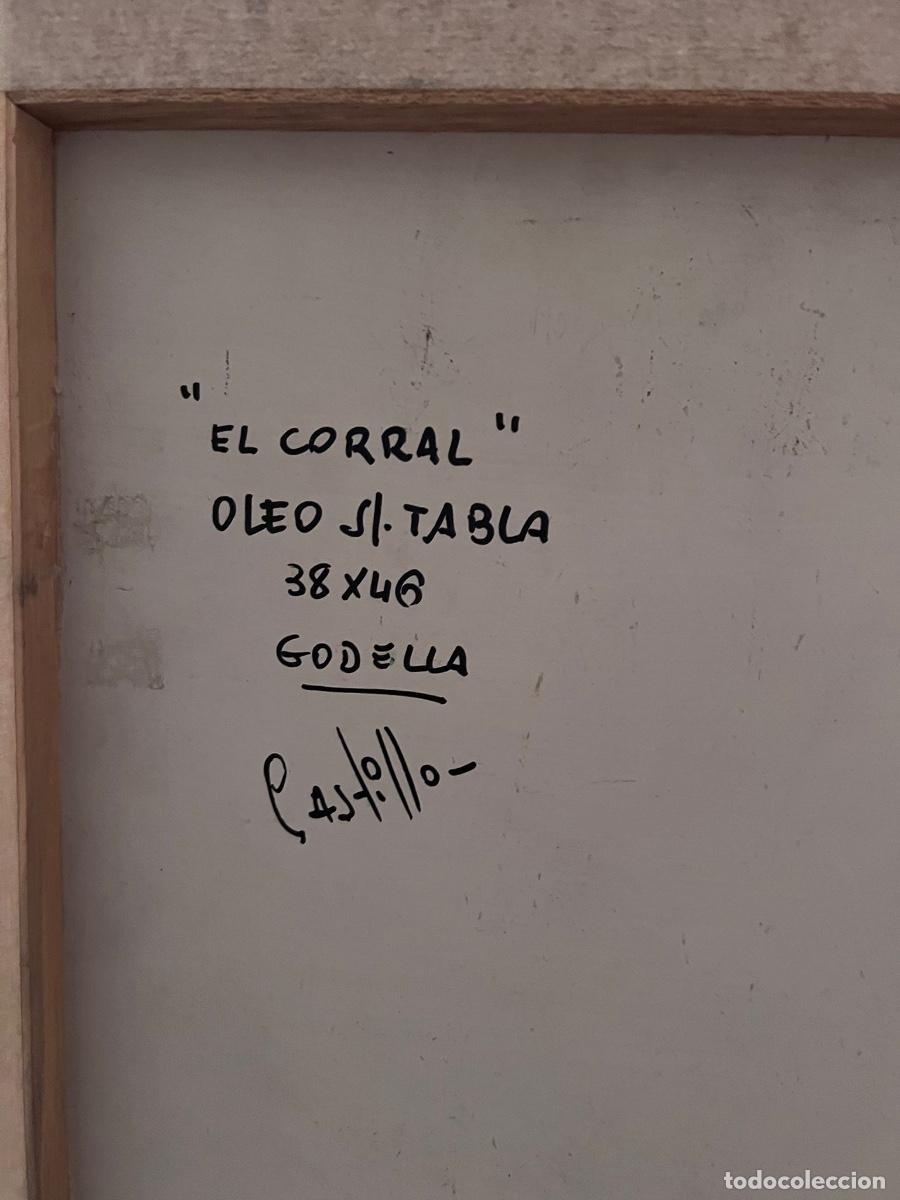 "EL CORRAL"
OLEO S/. TABLA
38X46
GODELLA
Castillo
todocoleccion